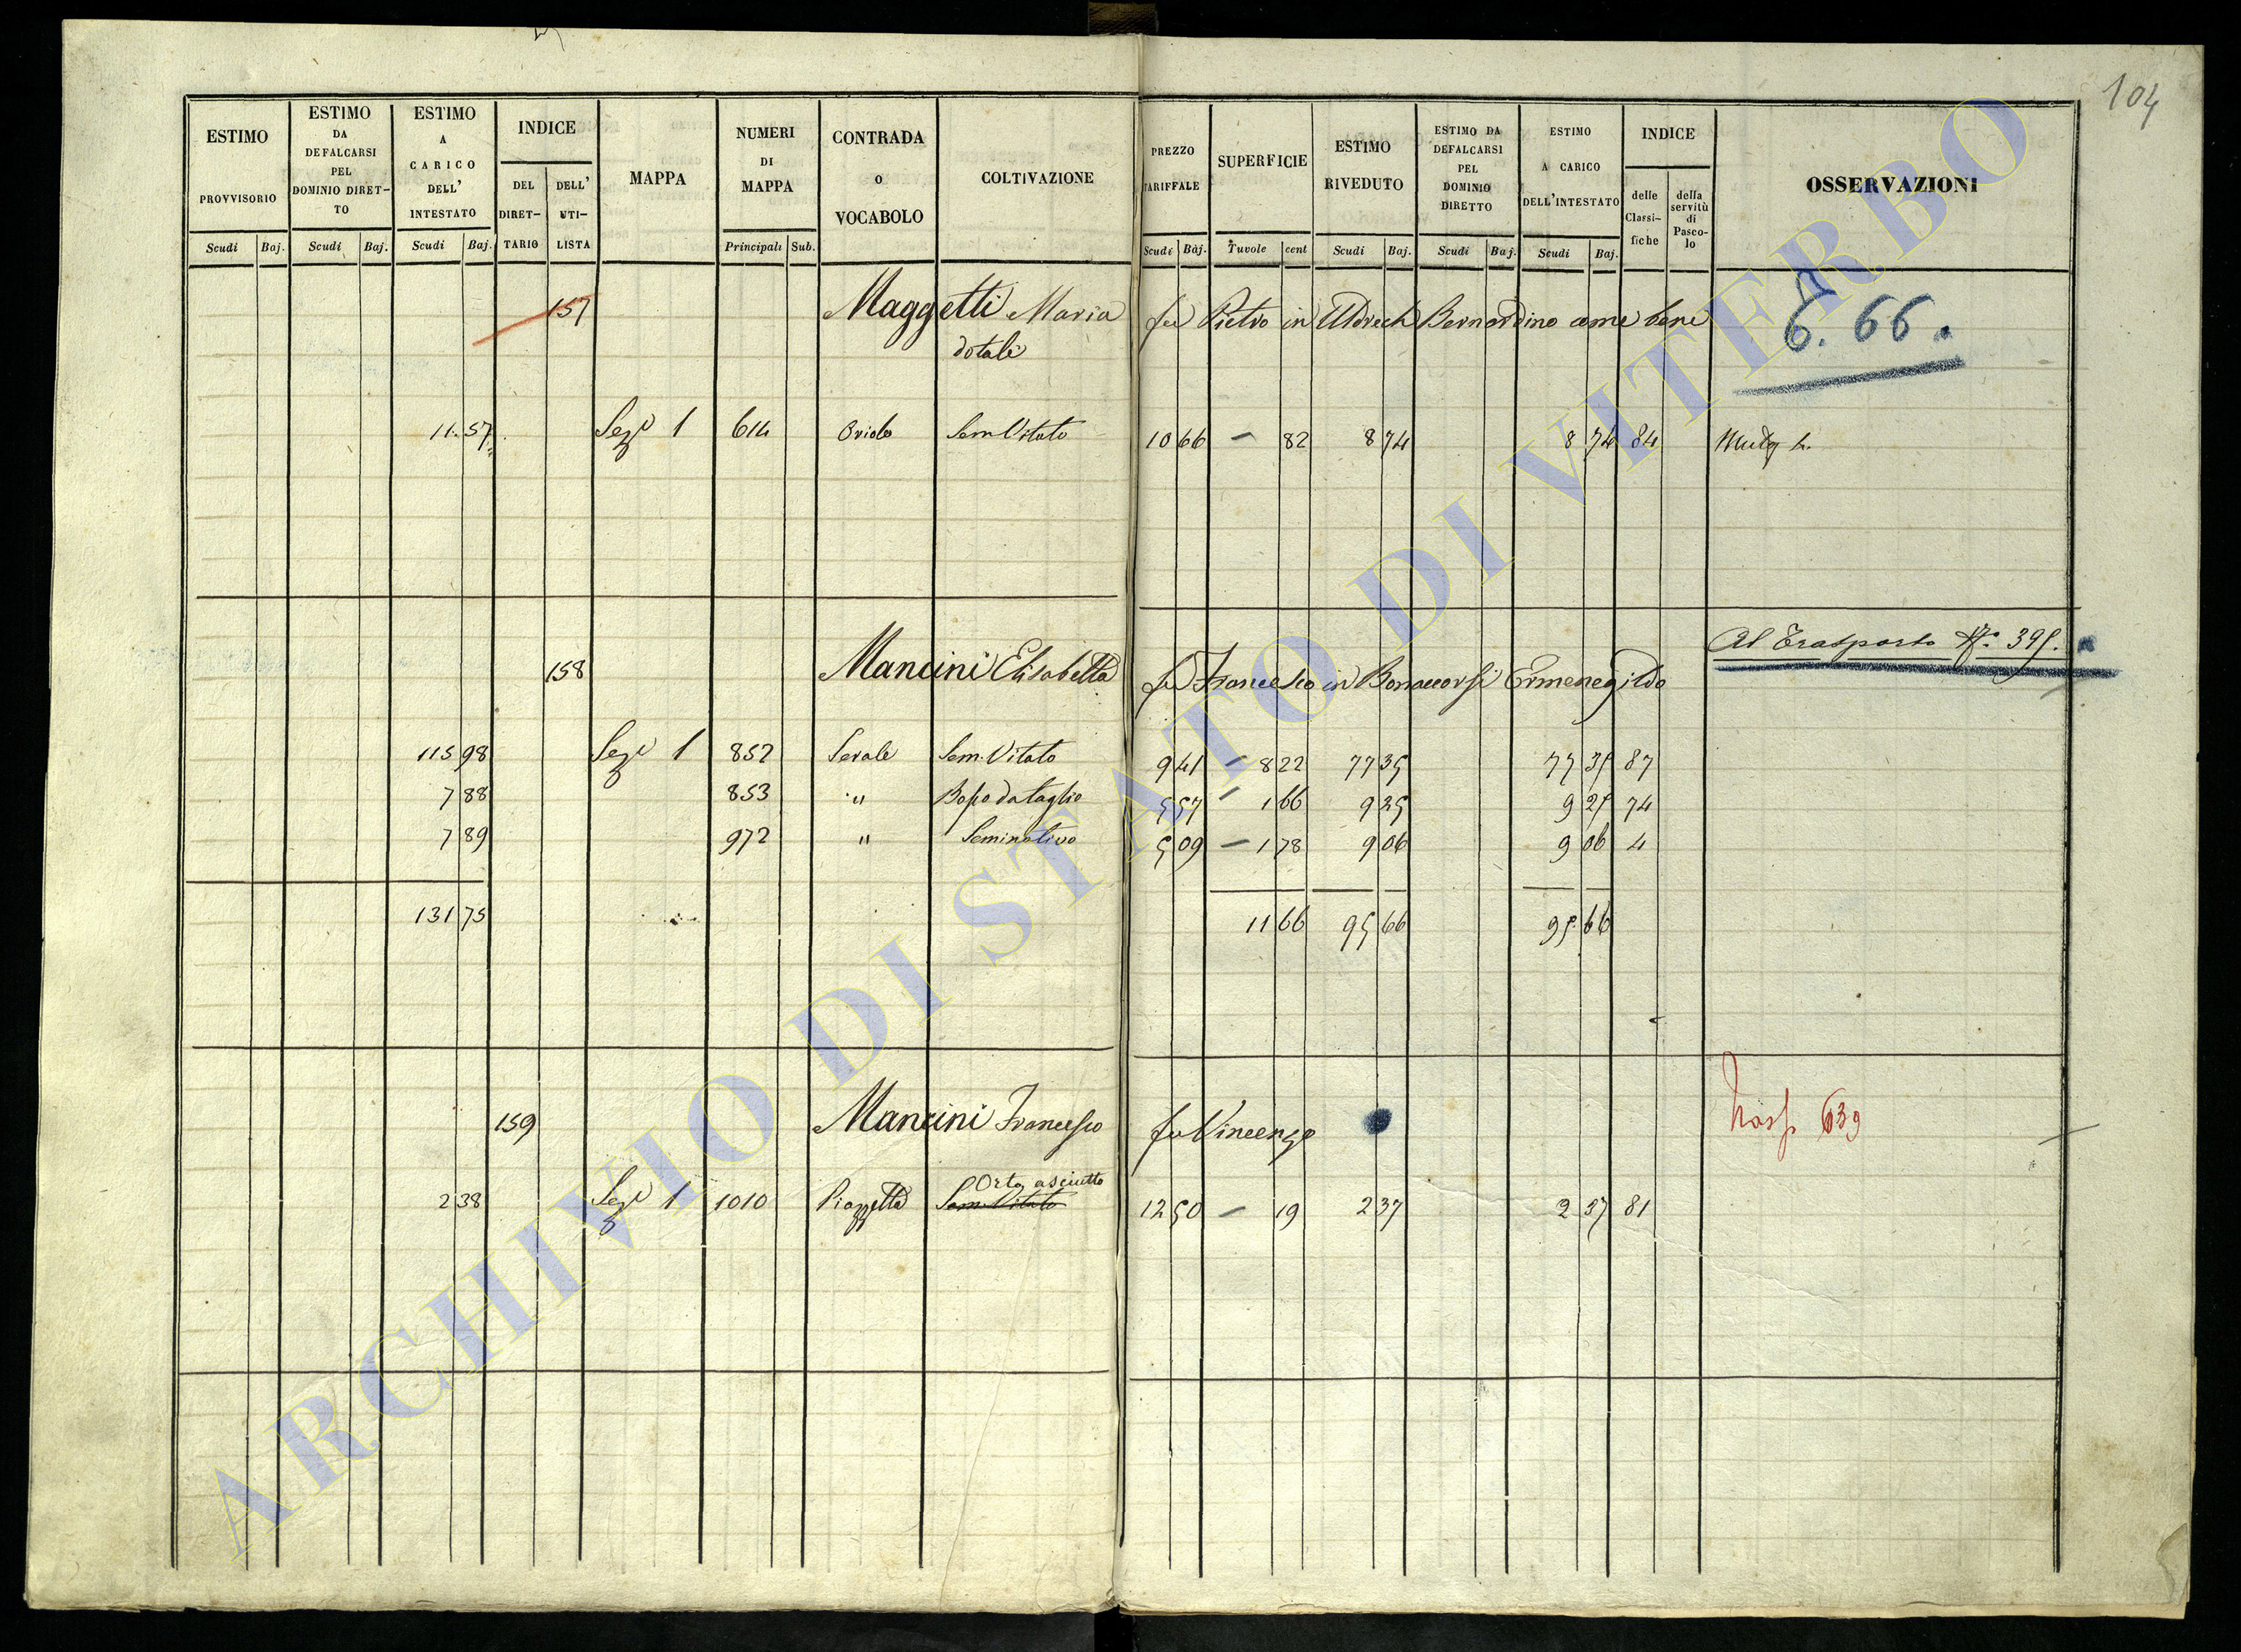 104
ESTIMO PROVVISORIO
ESTIMO DA DEFALCARSI PEL DOMINIO DIRETTO
ESTIMO A CARICO DELL' INTESTATO
INDICE
DEL DIRETTARIO
DELL' UTILISTA
MAPPA
NUMERI DI MAPPA
CONTRADA O VOCABOLO
COLTIVAZIONE
PREZZO TARIFFALE
SUPERFICIE
ESTIMO RIVEDUTO
ESTIMO DA DEFALCARSI PEL DOMINIO DIRETTO
ESTIMO A CARICO DELL'INTESTATO
INDICE
delle Classifiche
della servitù di Pascolo
OSSERVAZIONI
Scudi Baj. Scudi Baj. Scudi Baj. Principali Sub. Scudi Baj. Tuvole cent Scudi Baj. Scudi Baj. Scudi Baj.
157 Maggetti Maria fu Pietro in Bernardino come bene
dotali
6. 66.
11.57 Sez 1 614 Sem Vitato 10 66 – 82 8 74 8 74 84
Al Trasporto N° 395.
158 Mancini Elisabetta fu Francesco in Bonaccorsi Ermenegildo
115 98 Sez 1 852 Serale Sem. Vitato 9 41 – 8 22 77 35 77 35 87
7 88 853 " Bosco da taglio 5 57 – 1 66 9 25 9 25 74
7 89 972 " Seminativo 5 09 – 1 78 9 06 9 06 4
131 75 11 66 95 66 95 66
159 Mancini Francesco fu Vincenzo
Trasp 639
Orto asciutto
2 38 Sez 1 1010 Piazzetta Sem. Vitato 12 50 – 19 2 37 2 37 81
ARCHIVIO DI STATO DI VITERBO